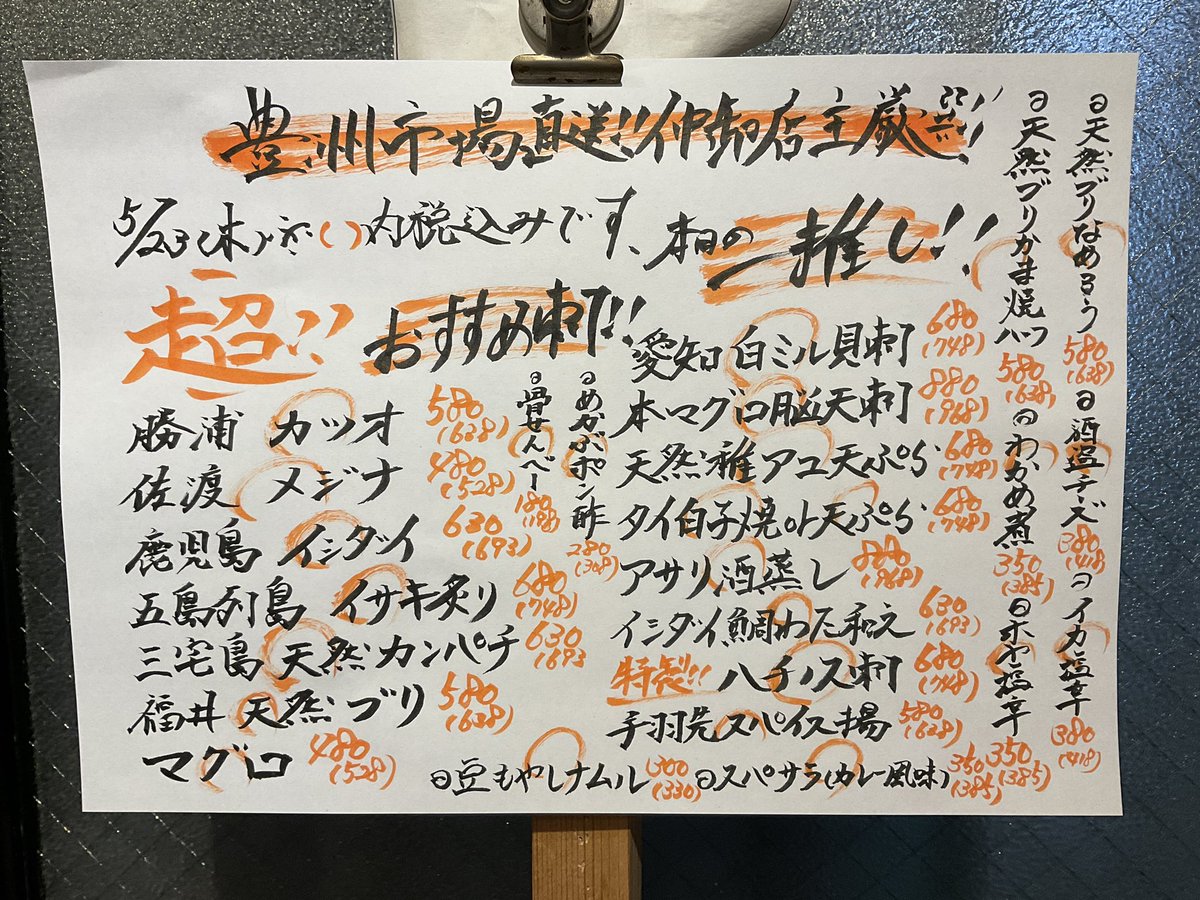 豊洲市場直送!!仲卸店主厳選!!
5/23(木)、※( )内税込みです、本日の一推し!!
超!! おすすめ刺!!
勝浦 カツオ 580 (638)
佐渡 メジナ 480 (528)
鹿児島 イシダイ 630 (693)
五島列島 イサキ炙り 680 (748)
三宅島 天然カンパチ 630 (693
福井 天然ブリ 580 (638)
マグロ 480 (528)
めかぶポン酢 280 (308)
骨せんべー 180 (198)
愛知 白ミル貝刺 680 (748)
本マグロ脳天刺 880 (968)
天然稚アユ天ぷら 680 (748)
タイ白子焼or天ぷら 680 (748)
アサリ酒蒸し 880 (968)
イシダイ鯛わた和え 630 (693)
特製!! ハチノス刺 680 (748)
手羽先スパイス揚 580 (638)
豆もやしナムル 300 (330)
スパサラ(カレー風味) 350 (385)
天然ブリなめろう 580 (638)
酒盗チーズ 380 (418
イカ塩辛 380 (418)
天然ブリかま焼ハーフ 580 (638)
わかめ煮 350 (385)
ホヤ塩辛 350 (385)